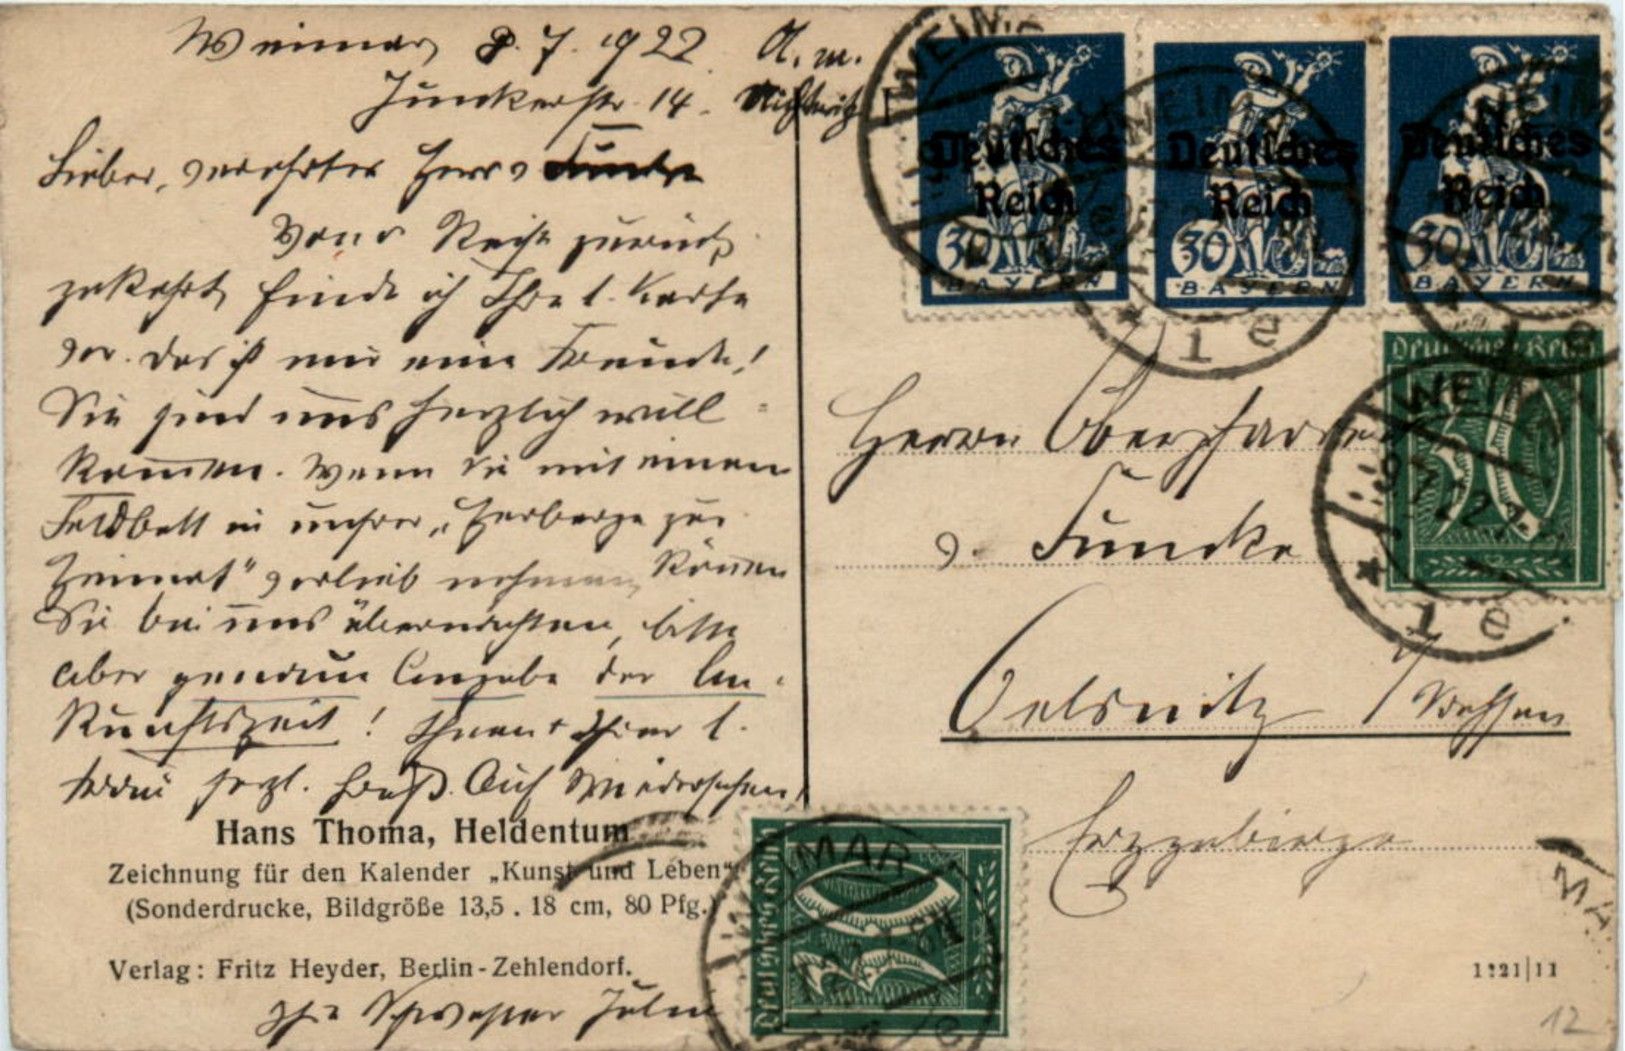 Weimar, 8.7.1922. A. m.
Junkerstr. 14.
Lieber, verehrter Herr v Funcke
Von d. Reise zurück
gekehrt, finde ich Ihre l. Karte
vor. Das ist mir eine Freude!
Sie sind uns herzlich will=
kommen. Wenn Sie mit einem
Feldbett in unsrer „Herberge zur
Heimat" vorlieb nehmen, können
Sie bei uns übernachten, bitte
aber genaue Angabe der An-
kunftszeit! Ihnen u Ihrer l.
Frau herzl. Gruß. Auf Wiedersehen!
Hans Thoma, Heldentum
Zeichnung für den Kalender „Kunst und Leben"
(Sonderdrucke, Bildgröße 13,5 . 18 cm, 80 Pfg.)
Verlag: Fritz Heyder, Berlin-Zehlendorf.
Ihre Schwester
Deutsches Reich
30
BAYERN
Deutsches Reich
30
BAYERN
Deutsches Reich
30
BAYERN
WEIMAR
1 e
Deutsches Reich
30
WEIMAR
9.7.22
1 e
Herrn Oberpfarrer
v. Funcke
Oelsnitz / Sachsen
Erzgebirge
Deutsches Reich
WEIMAR
1221|11
12